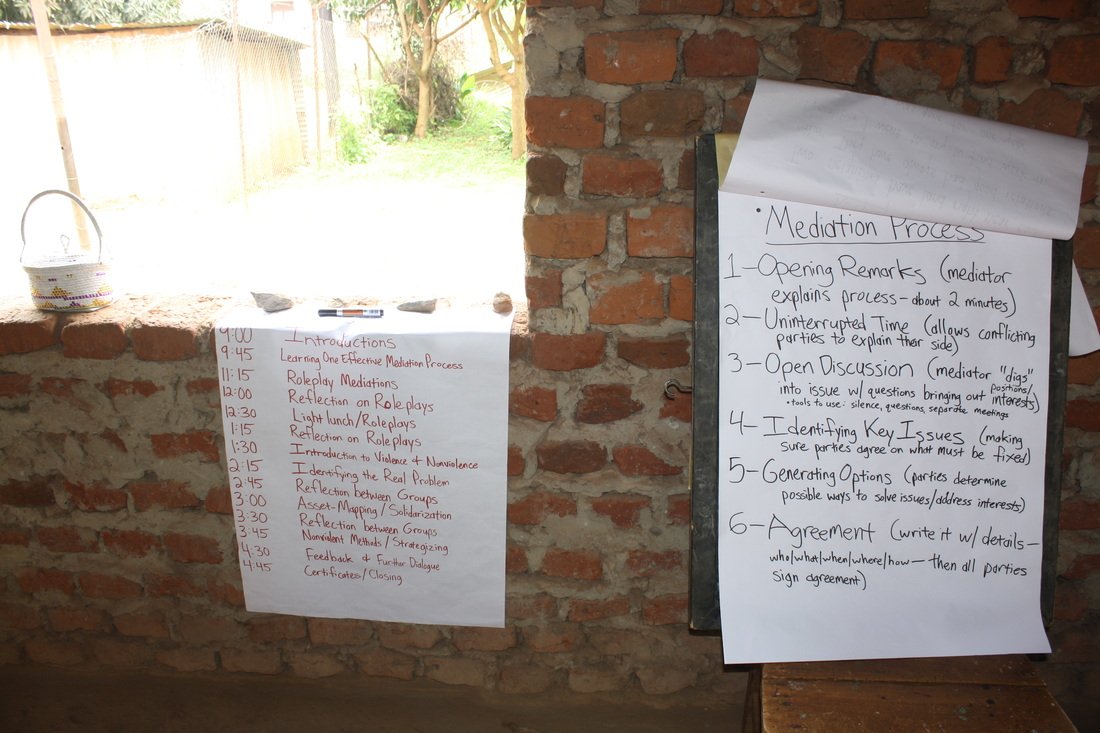 9:00 Introductions
9:45 Learning One Effective Mediation Process
11:15 Roleplay Mediations
12:00 Reflection on Roleplays
12:30 Light lunch/Roleplays
1:15 Reflection on Roleplays
1:30 Introduction to Violence & Nonviolence
2:15 Identifying the Real Problem
2:45 Reflection between Groups
3:00 Asset-Mapping/Solidarization
3:30 Reflection between Groups
3:45 Nonviolent Methods/Strategizing
4:30 Feedback & Further Dialogue
4:45 Certificates/Closing
• Mediation Process
1-Opening Remarks (mediator
explains process-about 2 minutes)
2-Uninterrupted Time (allows conflicting
parties to explain their side)
3-Open Discussion (mediator "digs"
into issue w/ questions bringing out positions/
interests)
• tools to use: silence, questions, separate meetings
4-Identifying Key Issues (making
sure parties agree on what must be fixed)
5-Generating Options (parties determine
possible ways to solve issues/address interests)
6-Agreement (write it w/ details-
who/what/when/where/how-then all parties
sign agreement)